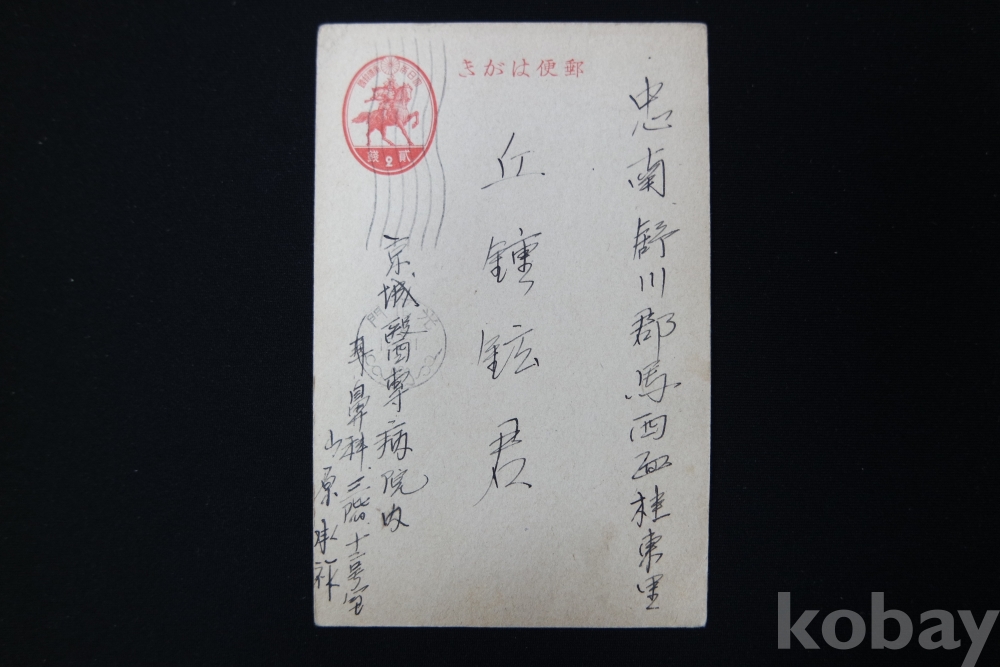 郵便はがき
忠南舒川郡馬西面桂東里
丘鍾鉉君
京城醫專病院内
耳鼻科三階十二号室
山原
貳2錢
光 門
kobay